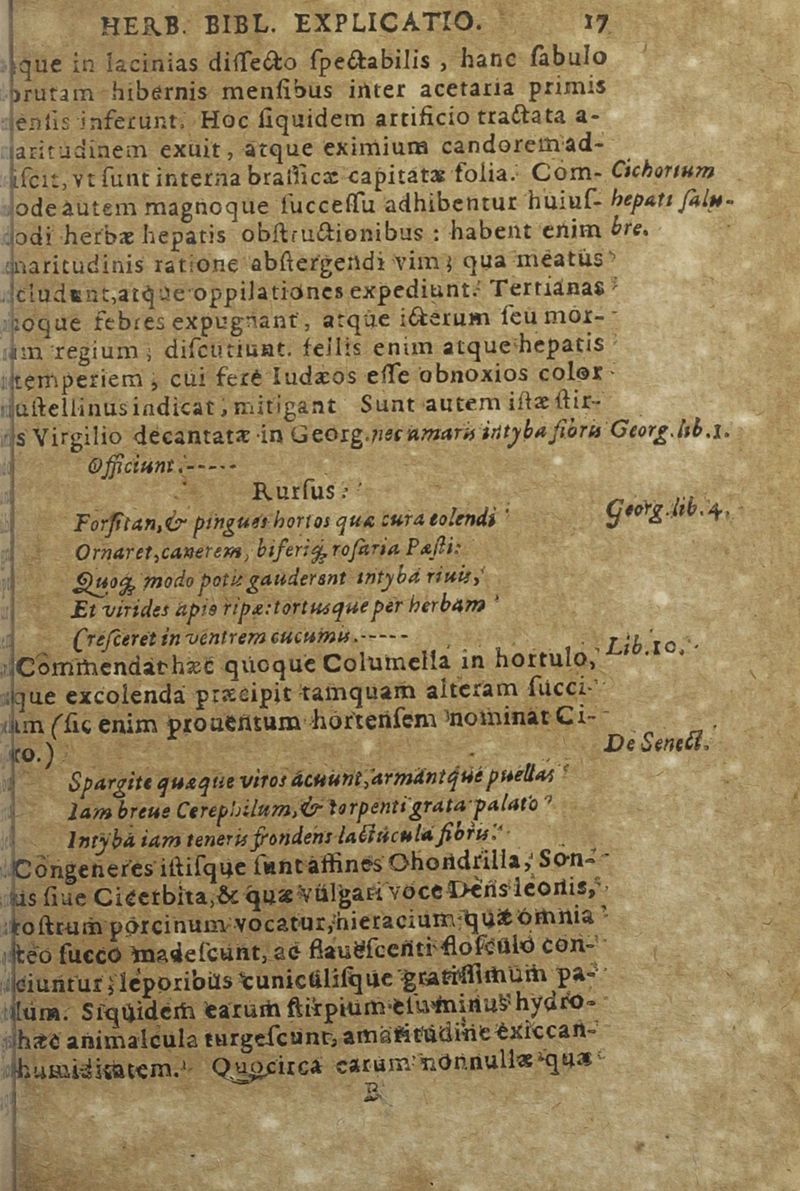 HERB. BIBL. EXPLICATIO. 17
que in lacinias diſſecto ſpectabilis, hanc ſabulo
rutam hibernis menſibus inter acetaria primis
enſis inferunt. Hoc ſiquidem artificio tractata a-
aritudinem exuit, atque eximium candorem ad-
iſcit, vt ſunt interna braſſicæ capitatæ folia. Com- Cichorium
ode autem magnoque ſucceſſu adhibentur huiuſ- hepati ſalu-
odi herbæ hepatis obſtructionibus: habent enim bre.
naritudinis ratione abſtergendi vim; qua meatus
cludunt, atque oppilationes expediunt. Tertianas
oque febres expugnant, atque icterum ſeu mor-
um regium, diſcutiunt. fellis enim atque hepatis
temperiem, cui ferè Iudæos eſſe obnoxios color
uſtellinus indicat, mitigant Sunt autem iſtæ ſtir-
s Virgilio decantatæ in Georg. nec amaris intyba fibris Georg. lib. 1.
Officiunt.-----
Rurſus:
Forſitan, & pingues hortos quæ cura colendi Georg. lib. 4.
Ornaret, canerem, biferiq; roſaria Pæſti:
Quoq; modo potis gauderent intyba riuis,
Et virides apio ripæ: tortusque per herbam
Creſceret in ventrem cucumis.-----
Commendat hæc quoque Columella in hortulo, Lib. 10.
que excolenda præcipit tamquam alteram ſucci-
um (ſic enim prouentum hortenſem nominat Ci-
ro.) De Senect.
Spargite quæque viros acuunt, armantque puellas
Iam breue Cerephilum, & torpenti grata palato
Intyba iam teneris frondens lactucula fibris.
Congeneres iſtiſque ſunt affines Chondrilla, Son-
us ſiue Cicerbita, & quæ vulgari voce Dens leonis,
roſtrum porcinum vocatur, hieracium; quæ omnia
teo ſucco madeſcunt, ac flaueſcenti floſculo con-
iciuntur; leporibus cuniculiſque gratiſſimum pa-
ulum. Siquidem earum ſtirpium hydro-
hæc animalcula turgeſcunt, amaritudine exiccan-
humiditatem. Quocirca earum nonnullæ quæ
B